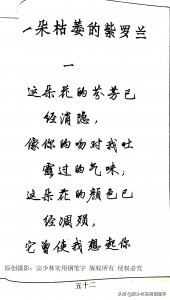 一朵枯萎的紫罗兰
一
这朵花的芬芳已
经消隐，
像你的吻对我吐
露过的气味；
这朵花的颜色已
经凋殒，
它曾使我想起你
原创摄影：宗少林实用钢笔字 版权所有 侵权必究
五十二